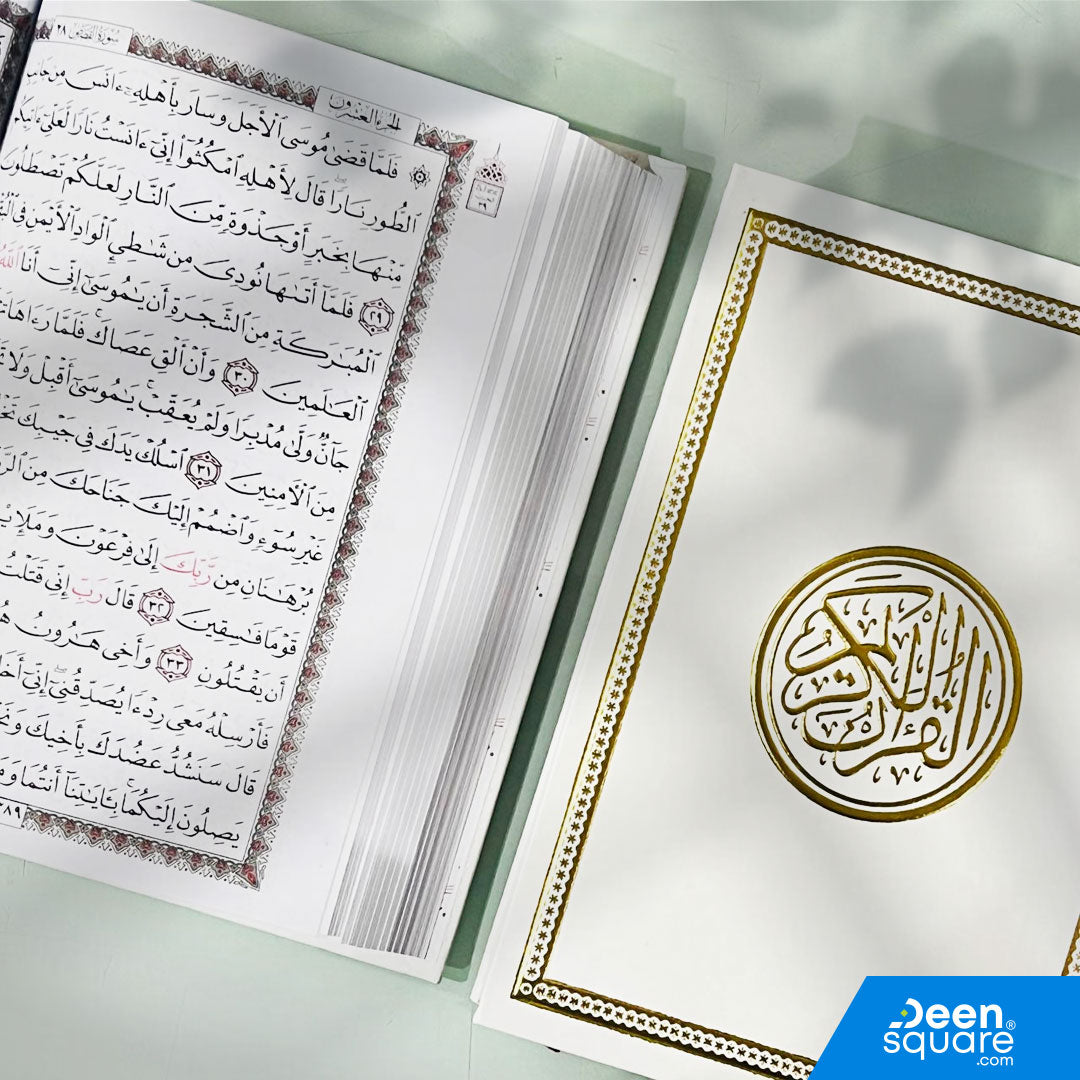 الجزء العشرون
سورة القصص ٢٨
۞ فَلَمَّا قَضَىٰ مُوسَى ٱلْأَجَلَ وَسَارَ بِأَهْلِهِۦٓ ءَانَسَ مِن جَانِبِ
ٱلطُّورِ نَارًا قَالَ لِأَهْلِهِ ٱمْكُثُوٓا۟ إِنِّىٓ ءَانَسْتُ نَارًا لَّعَلِّىٓ ءَاتِيكُم
مِّنْهَا بِخَبَرٍ أَوْ جَذْوَةٍ مِّنَ ٱلنَّارِ لَعَلَّكُمْ تَصْطَلُونَ
٢٩ فَلَمَّآ أَتَىٰهَا نُودِىَ مِن شَٰطِئِ ٱلْوَادِ ٱلْأَيْمَنِ فِى
ٱلْمُبَٰرَكَةِ مِنَ ٱلشَّجَرَةِ أَن يَٰمُوسَىٰٓ إِنِّىٓ أَنَا ٱللَّهُ
ٱلْعَٰلَمِينَ ٣٠ وَأَنْ أَلْقِ عَصَاكَ فَلَمَّا رَءَاهَا
جَآنٌّ وَلَّىٰ مُدْبِرًا وَلَمْ يُعَقِّبْ يَٰمُوسَىٰٓ أَقْبِلْ وَلَا
مِنَ ٱلْءَامِنِينَ ٣١ ٱسْلُكْ يَدَكَ فِى جَيْبِكَ
غَيْرِ سُوٓءٍ وَٱضْمُمْ إِلَيْكَ جَنَاحَكَ مِنَ
بُرْهَٰنَانِ مِن رَّبِّكَ إِلَىٰ فِرْعَوْنَ
قَوْمًا فَٰسِقِينَ ٣٢ قَالَ رَبِّ إِنِّى قَتَلْتُ
أَن يَقْتُلُونِ ٣٣ وَأَخِى هَٰرُونُ
فَأَرْسِلْهُ مَعِىَ رِدْءًا يُصَدِّقُنِىٓ إِنِّىٓ
قَالَ سَنَشُدُّ عَضُدَكَ بِأَخِيكَ
يَصِلُونَ إِلَيْكُمَا بِـَٔايَٰتِنَآ أَنتُمَا
القرآن الكريم
Deen
square®
.com